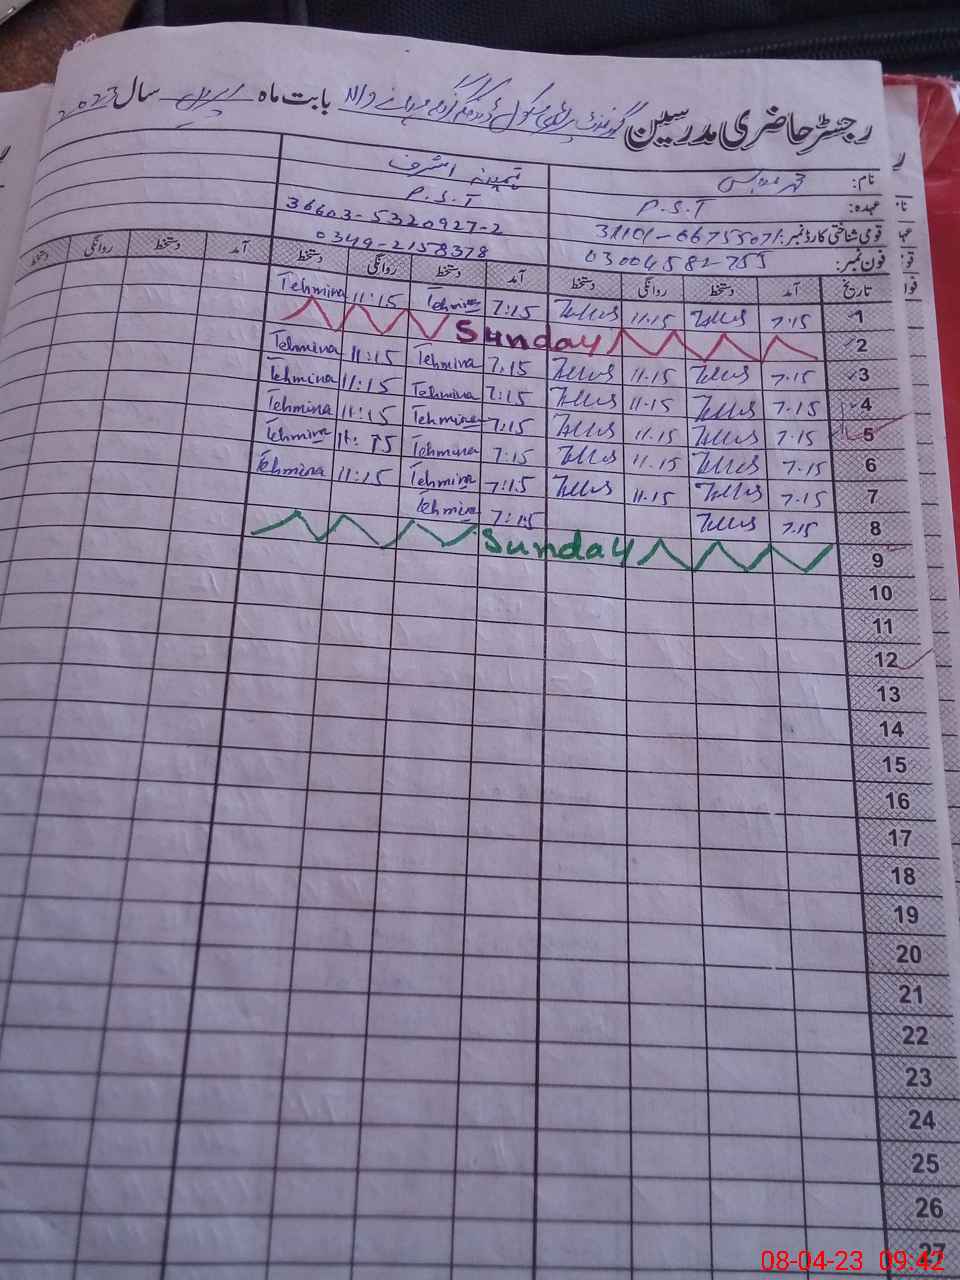 رجسٹر حاضری مدرسین گورنمنٹ پرائمری سکول بابت ماہ اپریل سال 2023
نام: ثمینہ اشرف
عہدہ: P.S.T P.S.T
قومی شناختی کارڈ نمبر: 36603-5320927-2
فون نمبر: 0349-2158378
تاریخ آمد دستخط روانگی دستخط آمد دستخط روانگی دستخط آمد دستخط روانگی دستخط
1 7.15 11.15 7:15 Tehmina 11:15 Tehmina
2 Sunday
3 7.15 11.15 7.15 Tehmina 11:15 Tehmina
4 7.15 11.15 7:15 Tehmina 11:15 Tehmina
5 7.15 11.15 7:15 Tehmina 11:15 Tehmina
6 7.15 11.15 7:15 Tehmina 11:15 Tehmina
7 7.15 11.15 7:15 Tehmina 11:15 Tehmina
8 7.15 7:15 Tehmina
9 Sunday
10
11
12
13
14
15
16
17
18
19
20
21
22
23
24
25
26
27
08-04-23 09:42